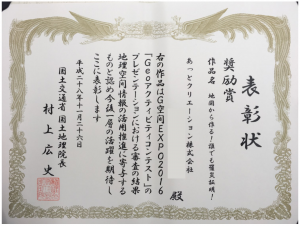 表彰状
奨励賞
作品名 地図から作る!誰でも罹災証明!
あっとクリエーション株式会社
殿
右の作品はG空間EXPO2016
「Geoアクティビティコンテスト」の
プレゼンテーションにおける審査の結果
地理空間情報の活用推進に寄与する
ものと認め今後一層の活躍を期待し
ここに表彰します
平成二十八年十一月二十六日
国土交通省 国土地理院長
村上広史